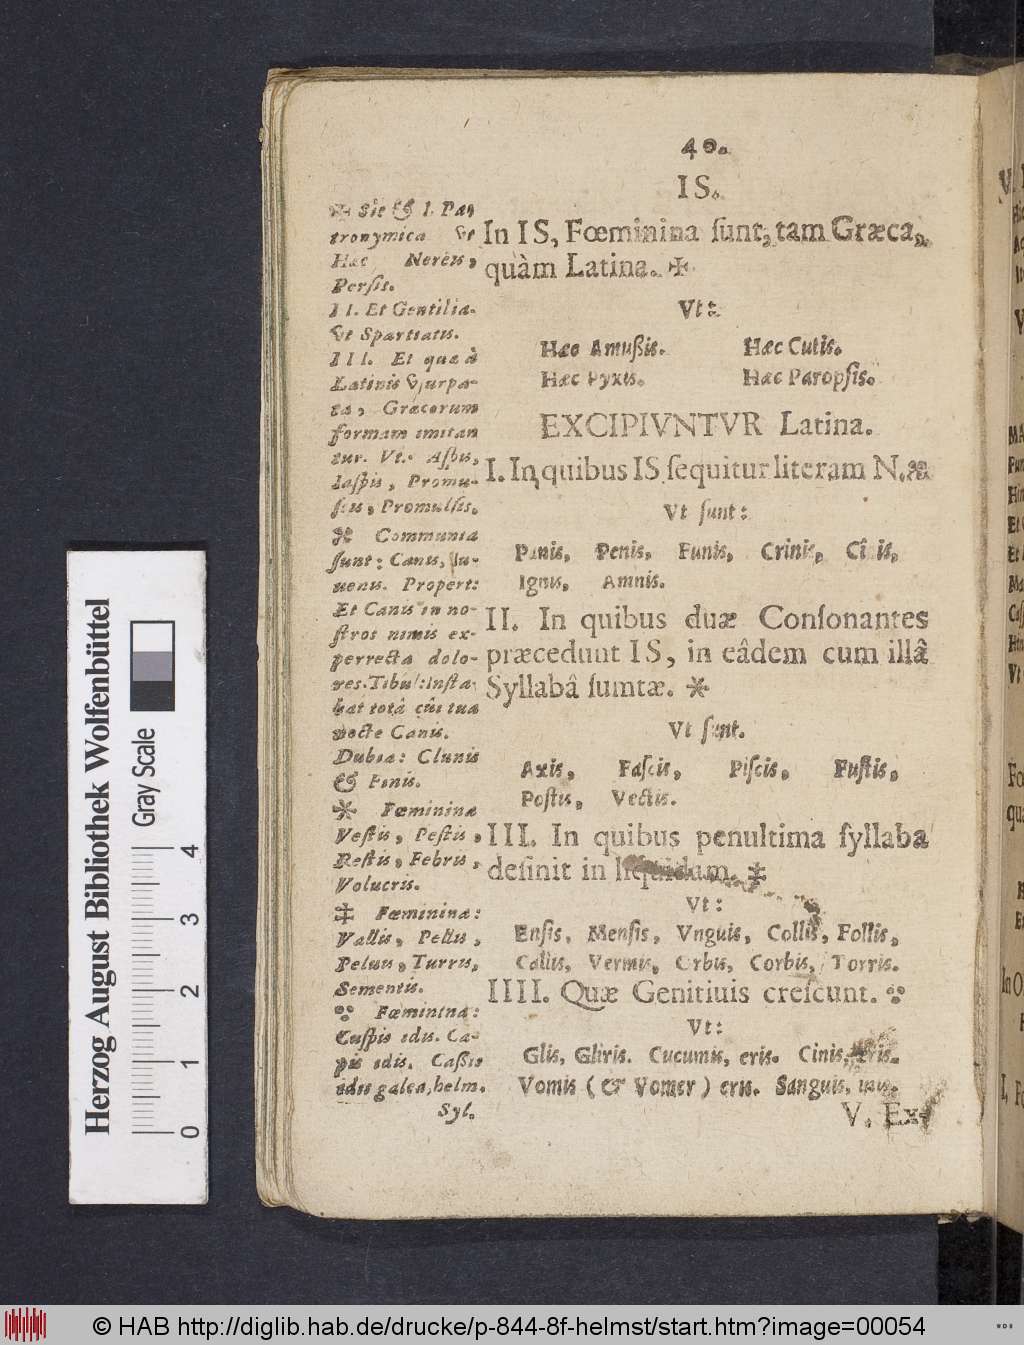 40.
IS.
In IS, Fœminina ſunt, tam Græca,
quàm Latina. ✠
Vt:
Hæc Amußis. Hæc Cutis.
Hæc Pyxis. Hæc Paropſis.
EXCIPIVNTVR Latina.
I. In quibus IS ſequitur literam N.
Vt ſunt:
Panis, Penis, Funis, Crinis,
Ignis, Amnis.
II. In quibus duæ Conſonantes
præcedunt IS, in eâdem cum illâ
Syllabâ ſumtæ. *
Vt ſunt.
Axis, Faſcis, Piſcis, Fuſtis,
Poſtis, Vectis.
III. In quibus penultima ſyllaba
deſinit in liquidam. ‡
Vt:
Enſis, Menſis, Vnguis, Collis, Follis,
Callis, Vermis, Orbis, Corbis, Torris.
IIII. Quæ Genitiuis creſcunt.
Vt:
Glis, Gliris. Cucumis, eris. Cinis, eris.
Vomis (& Vomer) eris. Sanguis, inis.
V. Ex-
✠ Sic & I. Pa-
tronymica Vt
Hæc Nereis,
Perſis.
II. Et Gentilia.
Vt Spartiatis.
III. Et quæ à
Latinis Vſurpa-
ta, Græcorum
formam imitan
tur. Vt. Aſpis,
Iaſpis, Promu-
ſcis, Promulſis.
Communia
ſunt: Canis, Iu-
uenis. Propert:
Et Canis in no-
ſtros nimis ex-
perrecta dolo-
res. Tibul: Inſta-
bat totâ cûi tua
nocte Canis.
Dubia: Clunis
& Finis.
* Fœminina
Veſtis, Peſtis,
Reſtis, Febris,
Volucris.
‡ Fœminina:
Vallis, Pellis,
Peluis, Turris,
Sementis.
Fœminina:
Cuſpis idis. Ca-
pis idis. Caßis
idis galea, helm.
Syl.
Herzog August Bibliothek Wolfenbüttel
Gray Scale
0 1 2 3 4
© HAB http://diglib.hab.de/drucke/p-844-8f-helmst/start.htm?image=00054